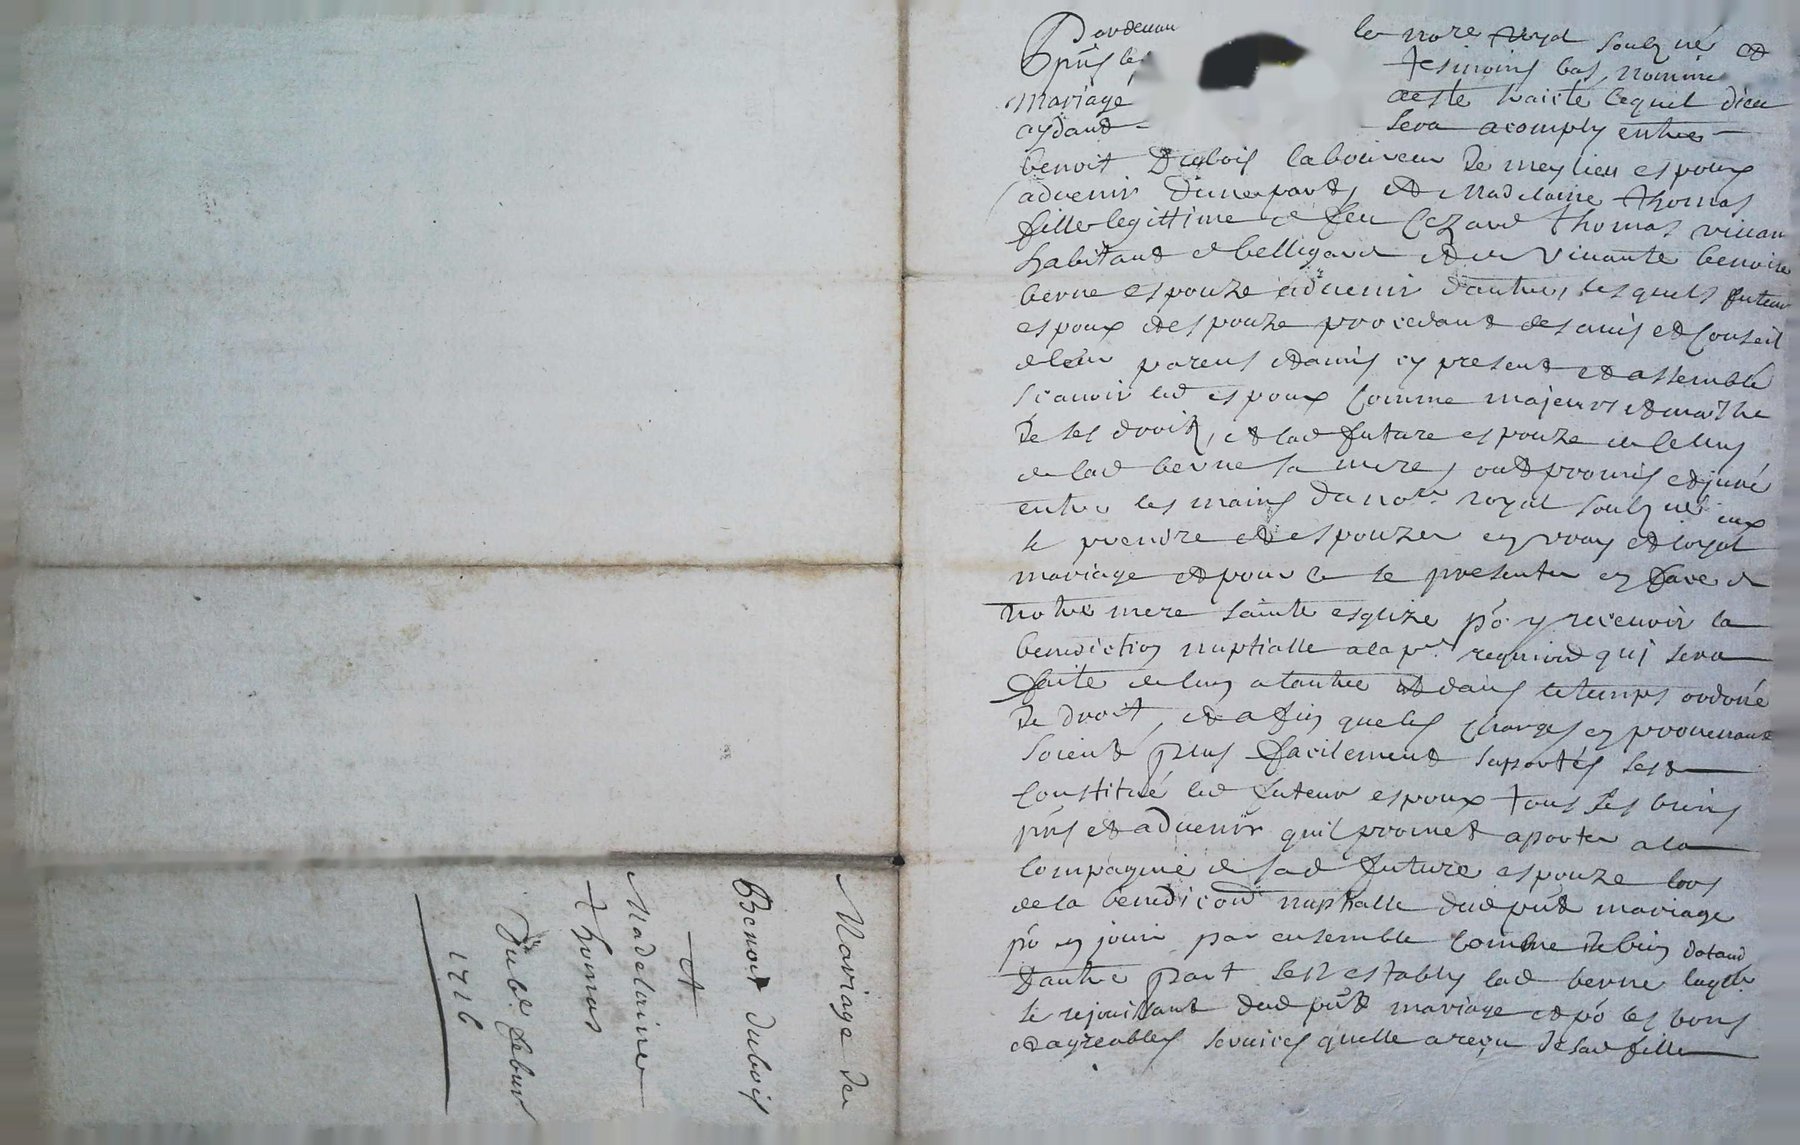 Pardevan le no.re royal soubz.né et
pñs les tesmoins bas nommé
mariage a esté traicté lequel dieu
aydant - sera acomply entre -
benoit Dubois laboureur de meylieu espoux
advenir d'une part, et Madelaine Thomas
fille legittime de feu Cezard Thomas vivan
habitant de belligard et de vivante benoite
berne espouze advenir d'autre, lesquels futeur
espoux et espouze procedant des avis et Conseil
de leur parens et amis cy present et assemblé
scavoir led espoux Comme majeurs et maitre
de ses droits, et lad future espouze de celluy
de lad berne sa mere, ont promis et juré
entre les mains du no.re royal soubz.né eux
se prendre et espouzer en vray et loyal
mariage et pour ce se presenter en face de
notre mere sainte esglize po.r y recevoir la
benediction nuptialle a la p.re requisiõn qui sera
faite de l'un a l'autre et dans le temps ordoñé
de droit, et afin que les charges en provenant
soient plus facilement suportés sest
Constitué led futeur espoux tous ses biens
pñs et advenir quil promet aporter a la
Compagnie de sad future espouze lors
de la benediçon nuptialle dud pñt mariage
po.r en jouir par ensemble Comme de bien dotand
D'autre part sest estably lad berne laq.lle
se rejouissant dud pñt mariage et po.r les bons
et agreables services quelle a reçu de sad fille
Mariage de
Benoit Dubois
et
Madelaine
Thomas
Du 6.e febur
1726